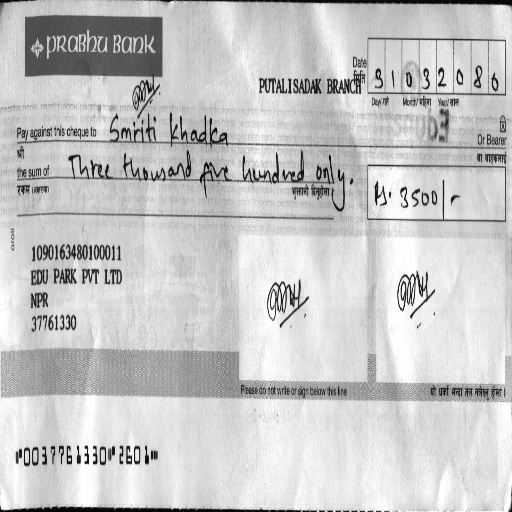 PRABHU BANK
PUTALISADAK BRANCH
Date
मिति
31032086
Day/गते Month/महिना Year/साल
Pay against this cheque to Smriti Khadka
Or Bearer
श्री
वा वाहकलाई
the sum of Three thousand five hundred only.
रकम (अक्षरमा)
भुक्तानी दिनुहोला
Rs. 3500/-
1090163480100011
EDU PARK PVT LTD
NPR
37761330
Please do not write or sign below this line
⑈0037761330⑈2601⑈